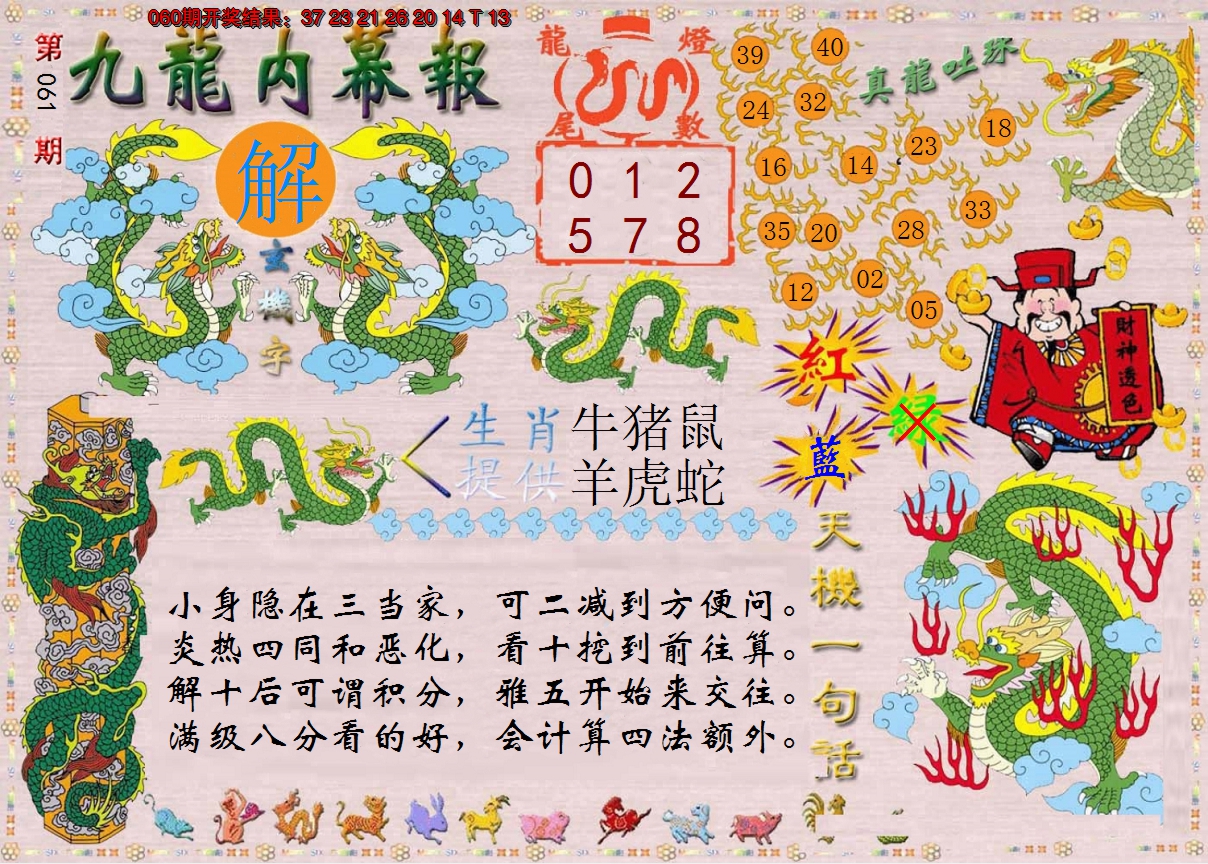 060期开奖结果：37 23 21 26 20 14 T 13
第061期
九龍内幕報
解
玄機字
龍燈
尾數
0 1 2
5 7 8
真龍吐珠
39 40
24 32
16 14 23 18
35 20 28 33
12 02 05
紅
绿
藍
財神透色
生肖提供
牛猪鼠
羊虎蛇
小身隐在三当家，可二减到方便问。
炎热四同和恶化，看十挖到前往算。
解十后可谓积分，雅五开始来交往。
满级八分看的好，会计算四法额外。
天機一句話